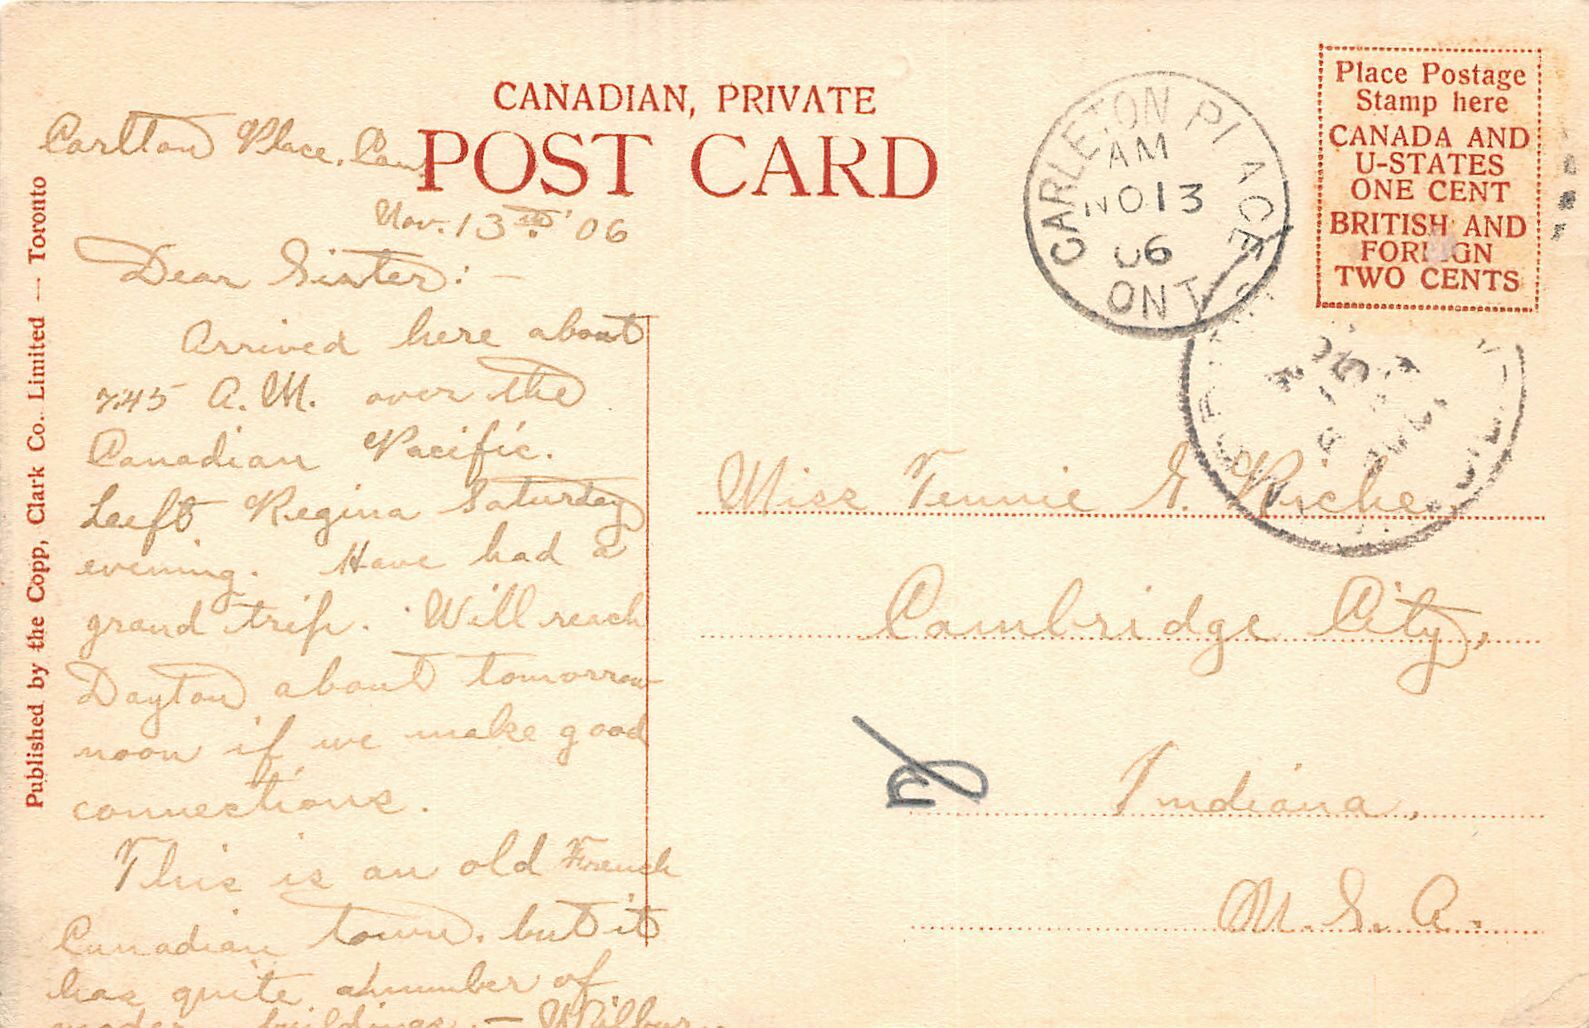 CANADIAN, PRIVATE
POST CARD
Place Postage
Stamp here
CANADA AND
U-STATES
ONE CENT
BRITISH AND
FOREIGN
TWO CENTS
CARLETON PLACE
AM
NO 13
06
ONT
Published by the Copp, Clark Co., Limited — Toronto
Carlton Place, Can
Nov. 13th '06
Dear Sister: –
Arrived here about
7:45 A.M. over the
Canadian Pacific.
Leeft Regina Saturday
evening. Have had a
grand trip. Will reach
Dayton about tomorrow
noon if we make good
connections.
This is an old French
Canadian town, but it
has quite a number of
moder buildings. – Wilbur
Miss Tennie G.
Cambridge City,
Indiana,
U.S.A.